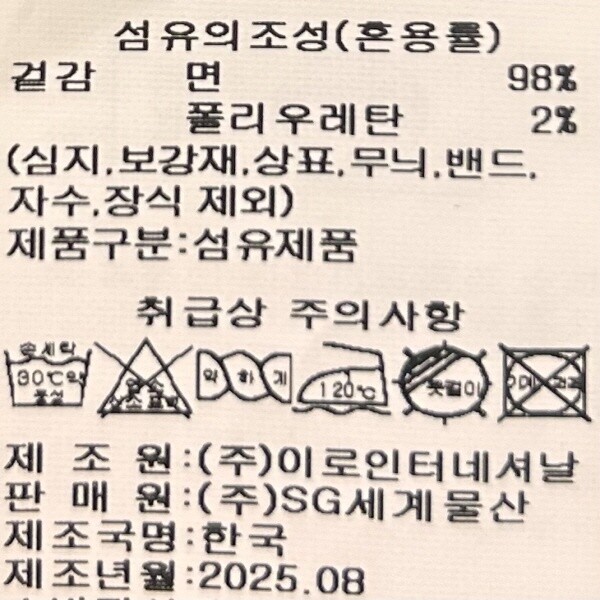 섬유의조성(혼용률)
겉감 면 98%
폴리우레탄 2%
(심지,보강재,상표,무늬,밴드,
자수,장식 제외)
제품구분:섬유제품
취급상 주의사항
손세탁 약하게 120℃ 옷걸이
30℃약
중성 염소
제 조 원:(주)이로인터네셔날
판 매 원:(주)SG세계물산
제조국명:한국
제조년월:2025.08